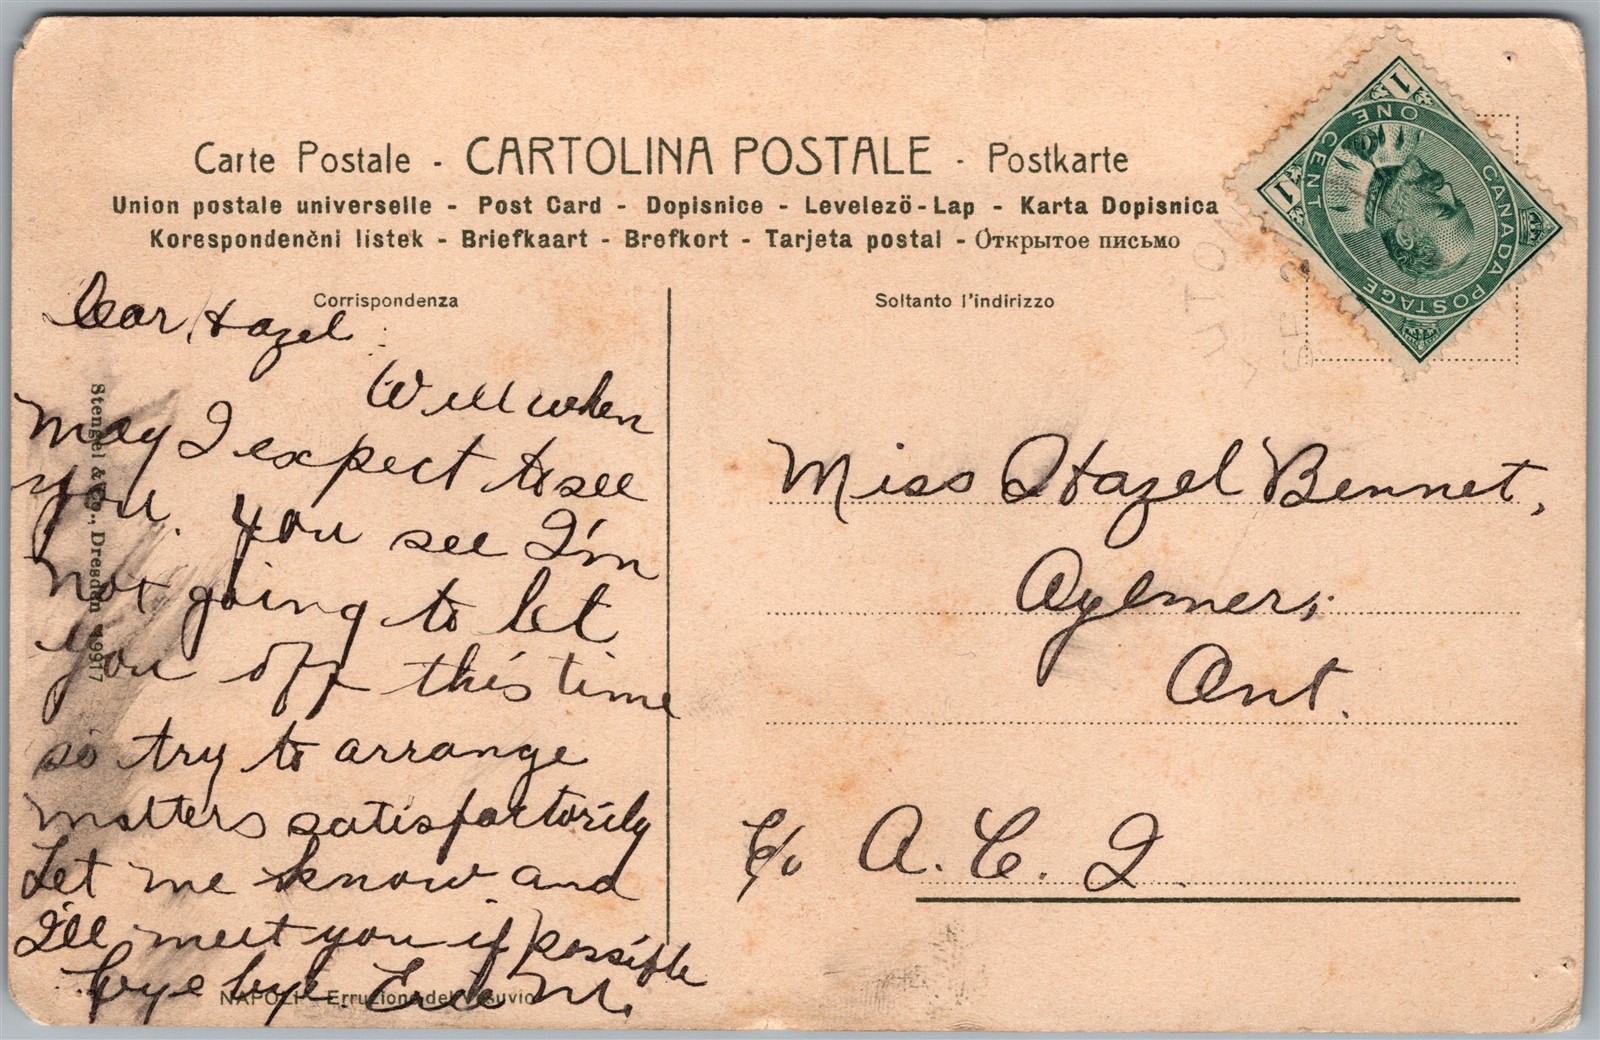 Carte Postale - CARTOLINA POSTALE - Postkarte
Union postale universelle - Post Card - Dopisnice - Levelezö-Lap - Karta Dopisnica
Korespondenční listek - Briefkaart - Brefkort - Tarjeta postal - Открытое письмо
Corrispondenza
Soltanto l'indirizzo
CANADA POSTAGE
ONE CENT
1
1
Dear Hazel
Will when
may I expect to see
you. you see I'm
not going to let
you off this time
so try to arrange
matters satisfactorily
Let me know and
I'll meet you if possible
bye bye. M.
Stengel & Co., Dresden 49917
NAPOLI - Erruzione del Vesuvio
Miss Hazel Bennet,
Aylmer,
Ont.
c/o A. C. I.